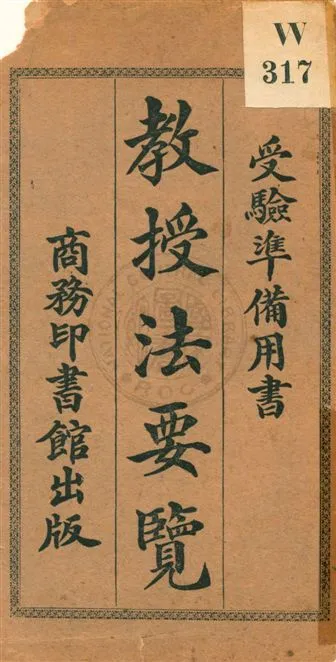 W
317
受驗準備用書
教授法要覽
商務印書館出版